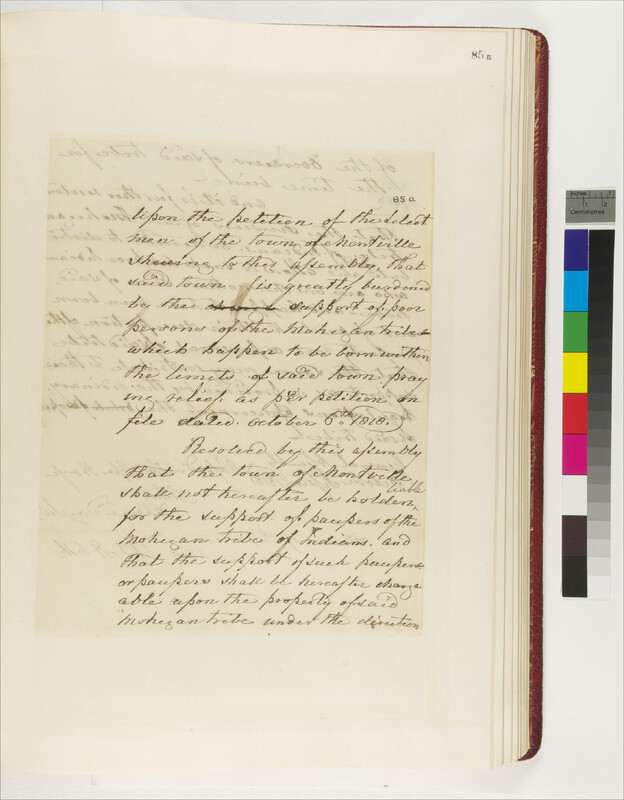 85 a
85 a
Upon the petition of the Select
men of the town of Montville
shewing to this assembly, that
said town is greatly burdened
by the support of poor
persons of the Mohegan tribe
which happen to be born within
the limits of said town pray
ing relief as pEr petition on
file dated. october 6th 1818.
Resolved by this assembly
that the town of Montville
shall not hereafter be holden
liable
for the support of paupers of the
Mohegan tribe of Indians. and
that the support of such pauper
or paupers shall be hereafter charge
able upon the property of said
Mohegan tribe under the direction
Inches
1
2
Centimetres